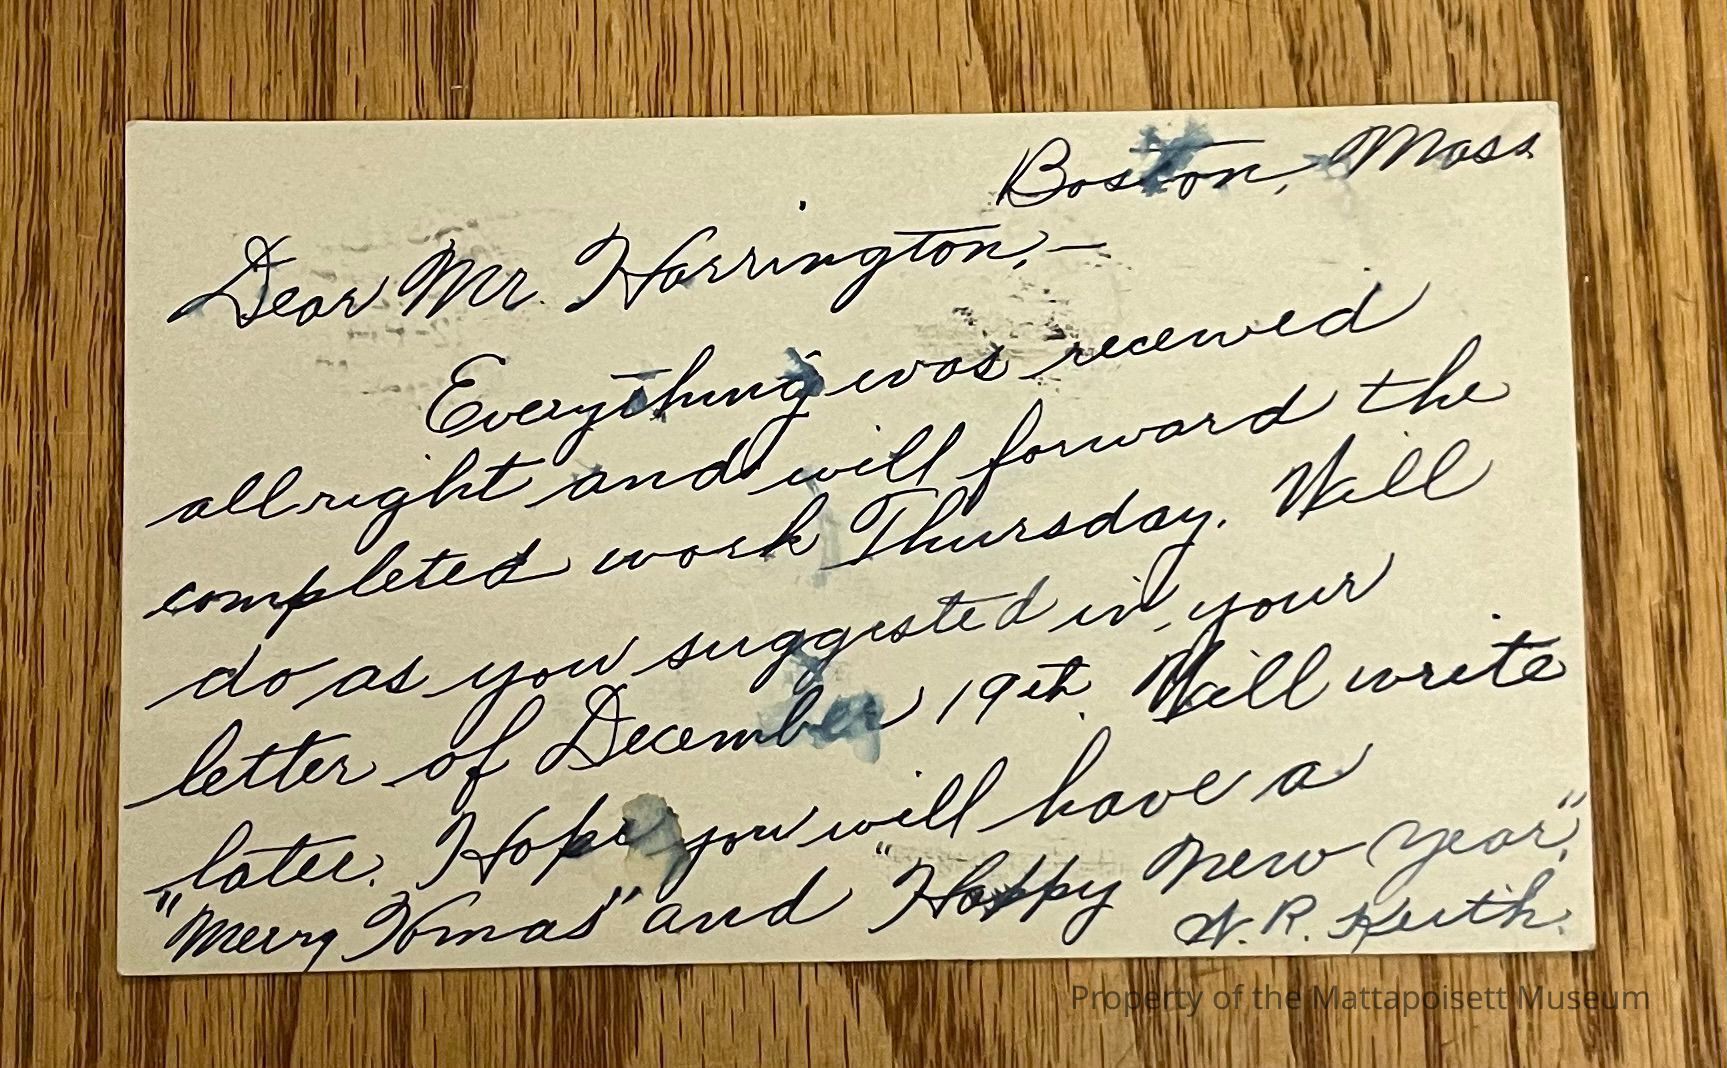 Boston, Mass
Dear Mr. Harrington,—
Everything was received
all right and will forward the
completed work Thursday. Will
do as you suggested in your
letter of December 19th. Will write
later. Hope you will have a
"Merry Xmas" and "Happy New Year".
W. R. Keith.
Property of the Mattapoisett Museum